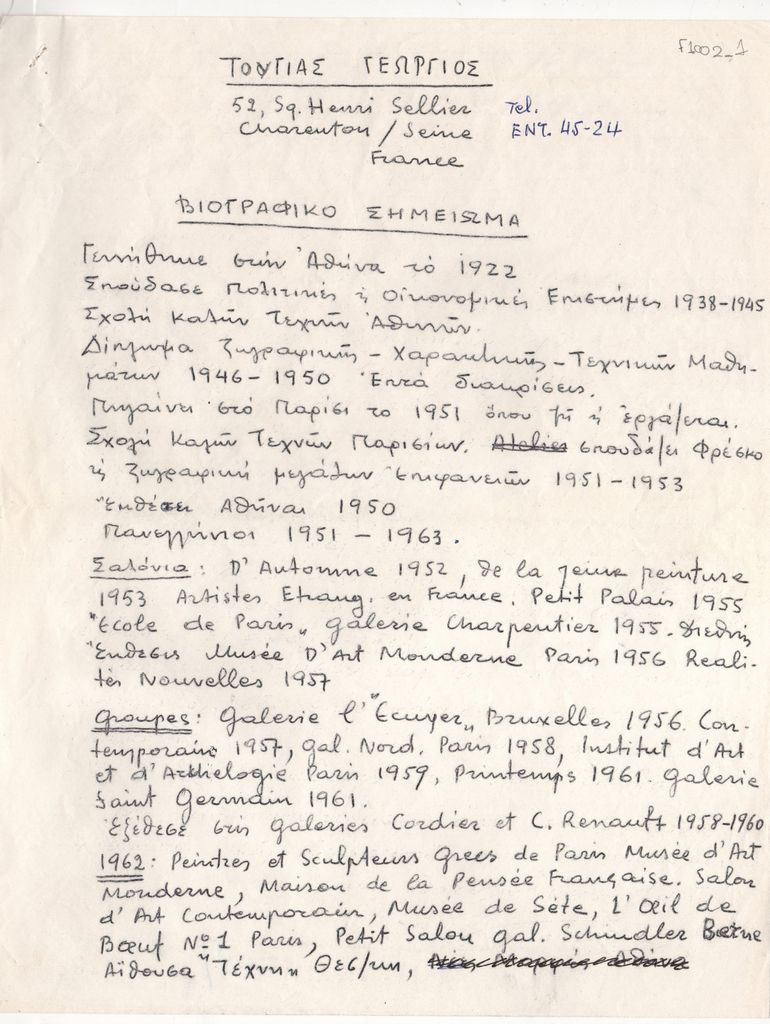 F1002_1
ΤΟΥΓΙΑΣ ΓΕΩΡΓΙΟΣ
52, Sq. Henri Sellier Tel.
Charenton / Seine ENT. 45-24
France
ΒΙΟΓΡΑΦΙΚΟ ΣΗΜΕΙΩΜΑ
Γεννήθηκε στήν Ἀθήνα τό 1922
Σπούδασε Πολιτικές ἡ Οἰκονομικές Ἐπιστήμες 1938-1945
Σχολή Καλῶν Τεχνῶν Ἀθηνῶν.
Δίπλωμα Ζωγραφικῆς - Χαρακτικῆς - Τεχνικῶν Μαθη-
μάτων 1946-1950 Ἑπτά διακρίσεις.
Πηγαίνει στό Παρίσι το 1951 ὅπου ζῆ ἡ ἐργάζεται.
Σχολή Καλῶν Τεχνῶν Παρισίων. Atelier σπουδάζει Φρέσκο
ἡ ζωγραφική μεγάλων ἐπιφανειῶν 1951-1953
Ἐκθέσει Ἀθῆναι 1950
Πανελλήνιοι 1951 - 1963.
Σαλόνια: D' Automne 1952, de la jeune peinture
1953 Artistes Etrang. en France. Petit Palais 1955
"Ecole de Paris„ Galerie Charpentier 1955. Διεθνής
Ἔκθεσις Musée D'Art Monderne Paris 1956 Reali-
tés Nouvelles 1957
Groupes: Galerie l'"Ecuyer„ Bruxelles 1956. Con-
temporain 1957, Gal. Nord. Paris 1958, Institut d'Art
et d'Archielogie Paris 1959, Printemps 1961. Galerie
Saint Germain 1961.
Ἐξέθεσε στίς Galeries Cordier et C. Renault 1958-1960
1962: Peintres et Sculpteurs Grecs de Paris Musée d'Art
Monderne, Maison de la Pensée Française. Salon
d'Art Contemporain, Musée de Séte, L'Œil de
Bœuf Nº 1 Paris, Petit Salon Gal. Schindler Berne
Αἴθουσα "Τέχνη" Θεσ/νικη,